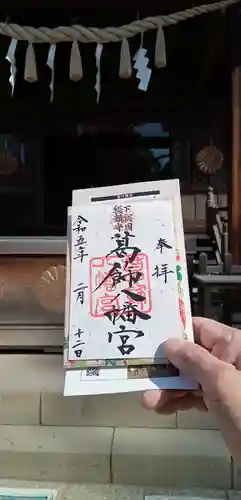 奉拝
下総国
総鎮守
葛飾八幡宮
令和五年
二月
十二日